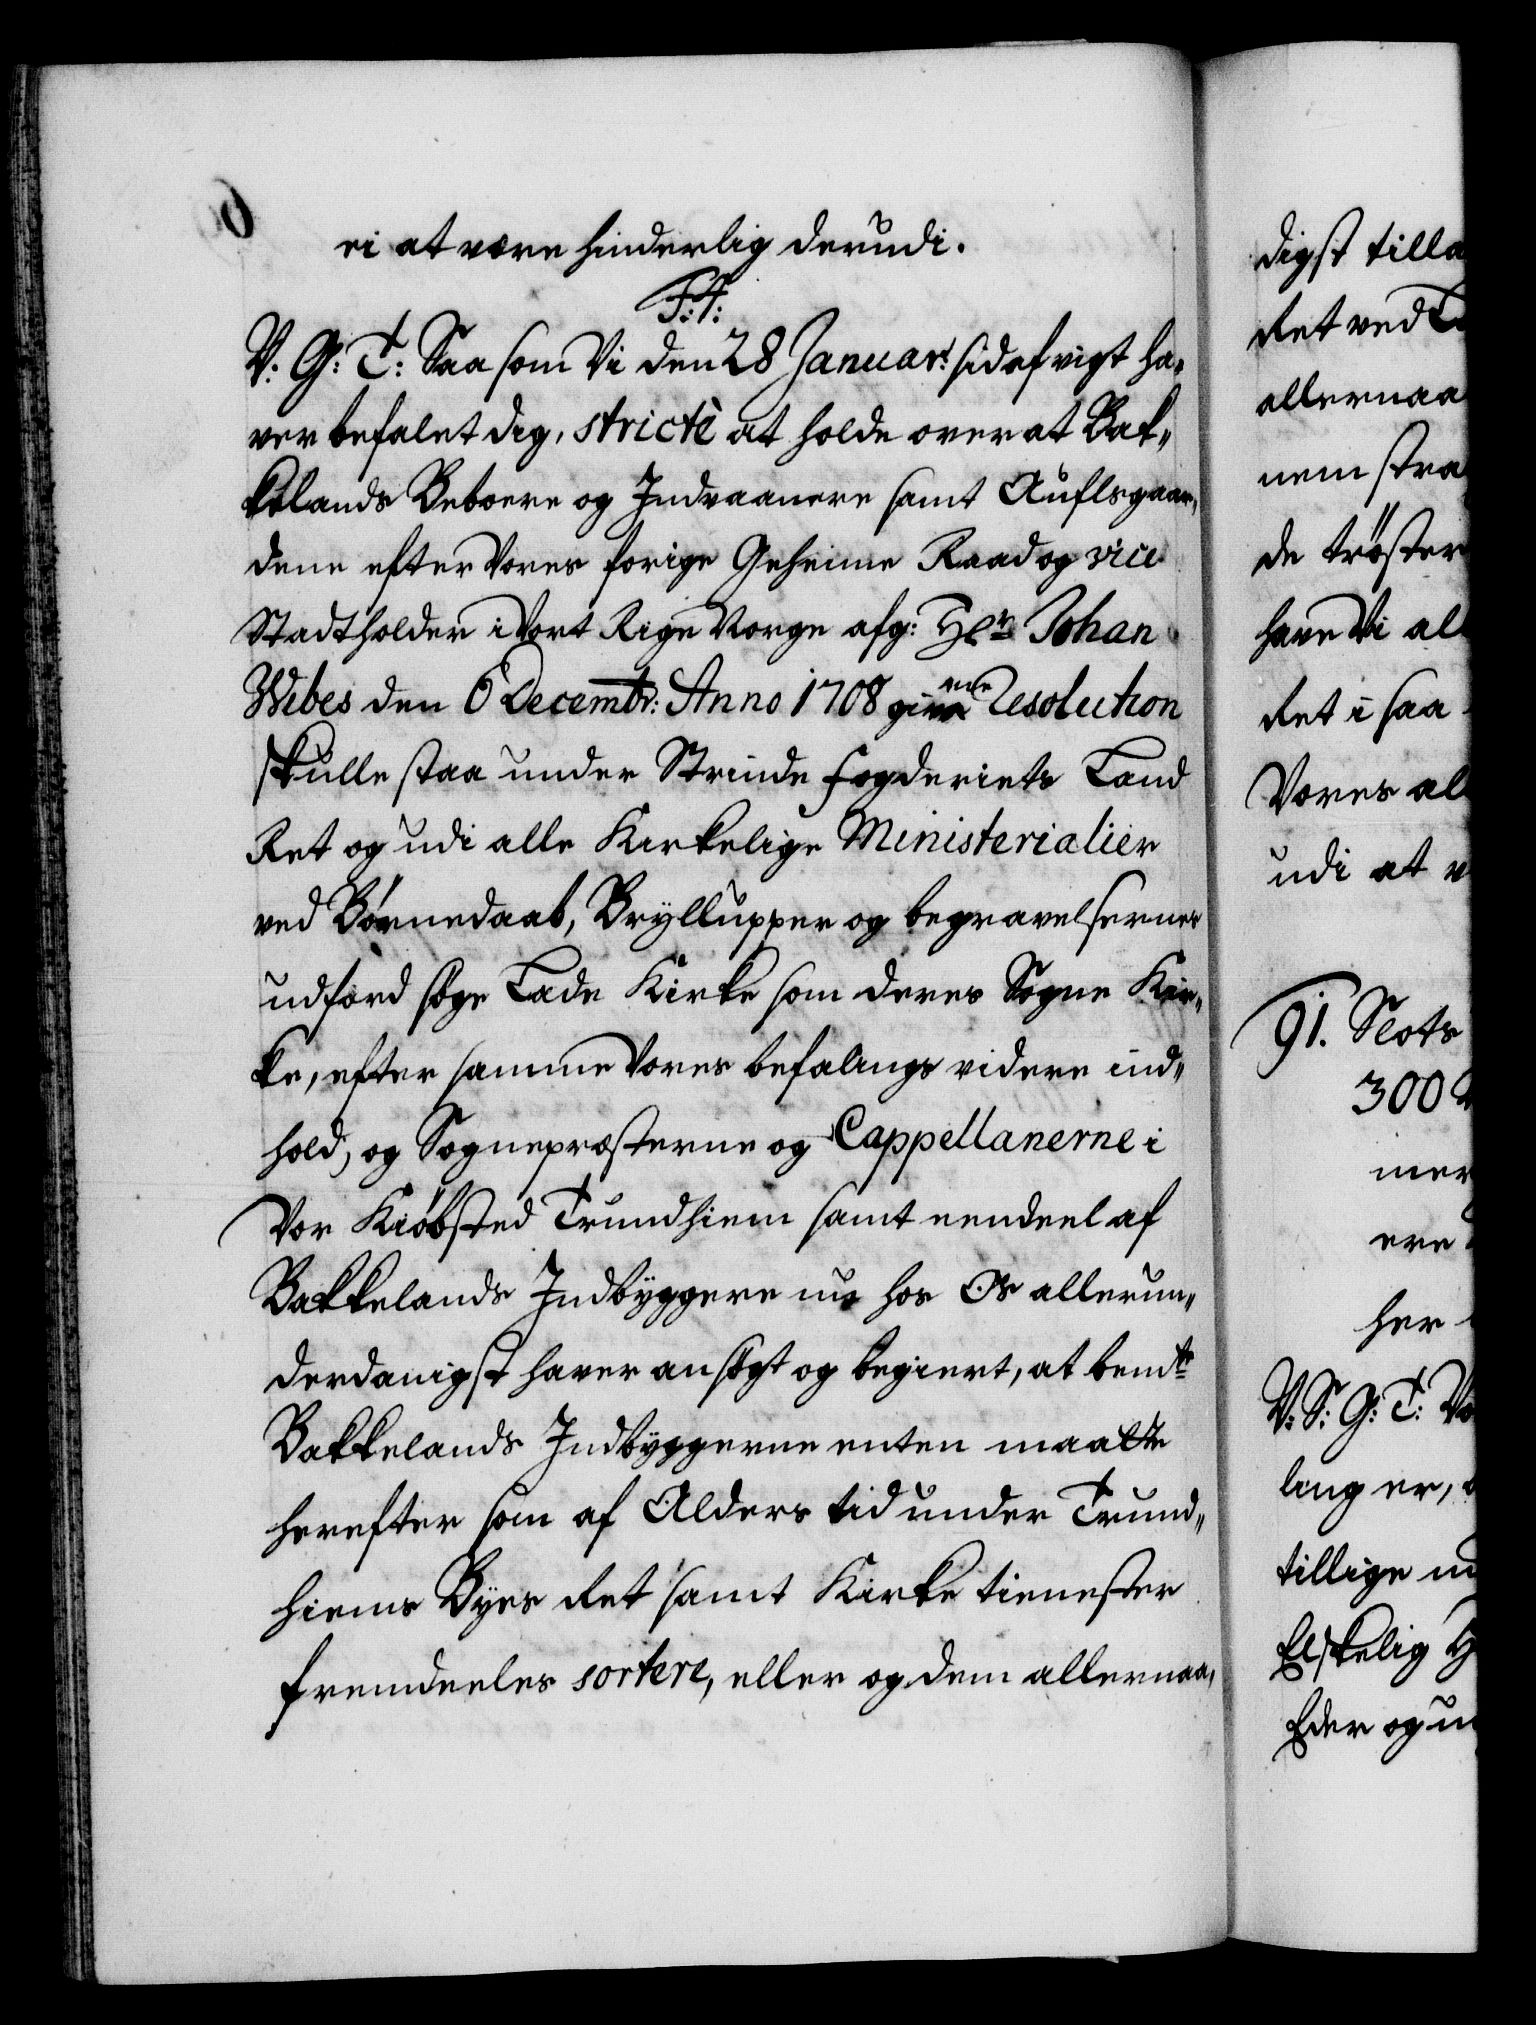 ei at være hinderlig derudi.
F: 4:
V: G: T: Saa som Vi den 28 Januar: sidst vigt ha,,
ver befalet dig, strictè at holde over at Bak,,
kelands Beboere og Indvaanere samt Aufls gaar,,
dene efter Vores forige Geheime Raad og vice
Stadtholder i Vort Rige Norge afg: Hrn Johan
Wibes den 6 Decembr: Anno 1708 givne Resolution
skulle staa under Strinde fogderiets Land
Ret og udi alle Kirkelige Ministerialier
ved Børnedaab, Brylluppper og begravelsernes
udførd søge Lade Kirke som deres Sogne Kir,,
ke, efter samme Vores befalings videre ind,,
hold, og Sognepræsterne og Cappellanerne i
Vor Kiøbsted Trundhiem samt eendeel af
Bakkelands Indbyggere nu hos Os allerun,,
derdanigst haver ansøgt og begiert, at bemte
Bakkelands Indbyggerne enten maatte
herefter som af Alders tid under Trund,,
hiems Byes Ret samt Kirke tienester
fremdeeles sortere, eller og dem allernaa,,
digst tilla
Ret ved
allernaa
nem stra
de trøster
have Vi al
Ret i saa
Vores al
udi at v
91. Slots
300
mer
ere
her
V: S: G: T: Vo
lang er,
tillige
Elskelig H
Eder og u